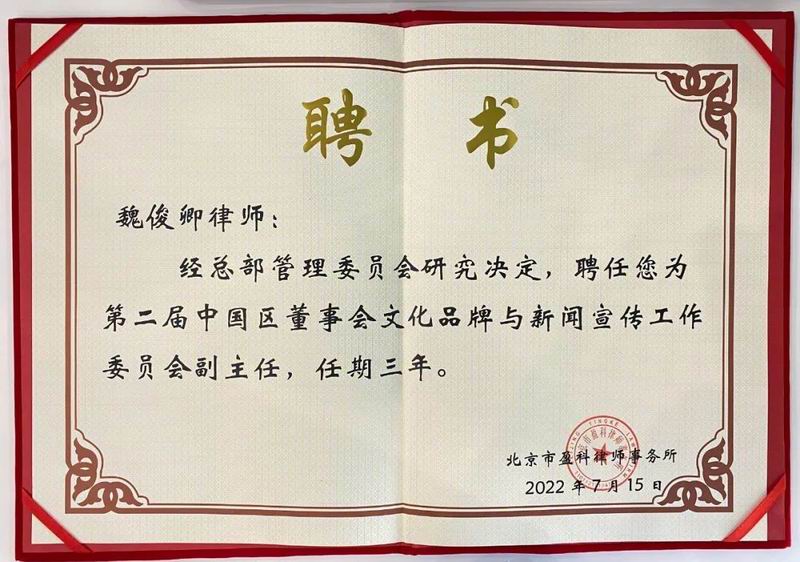 聘 书
魏俊卿律师：
经总部管理委员会研究决定，聘任您为
第二届中国区董事会文化品牌与新闻宣传工作
委员会副主任，任期三年。
北京市盈科律师事务所
2022 年 7 月 15 日